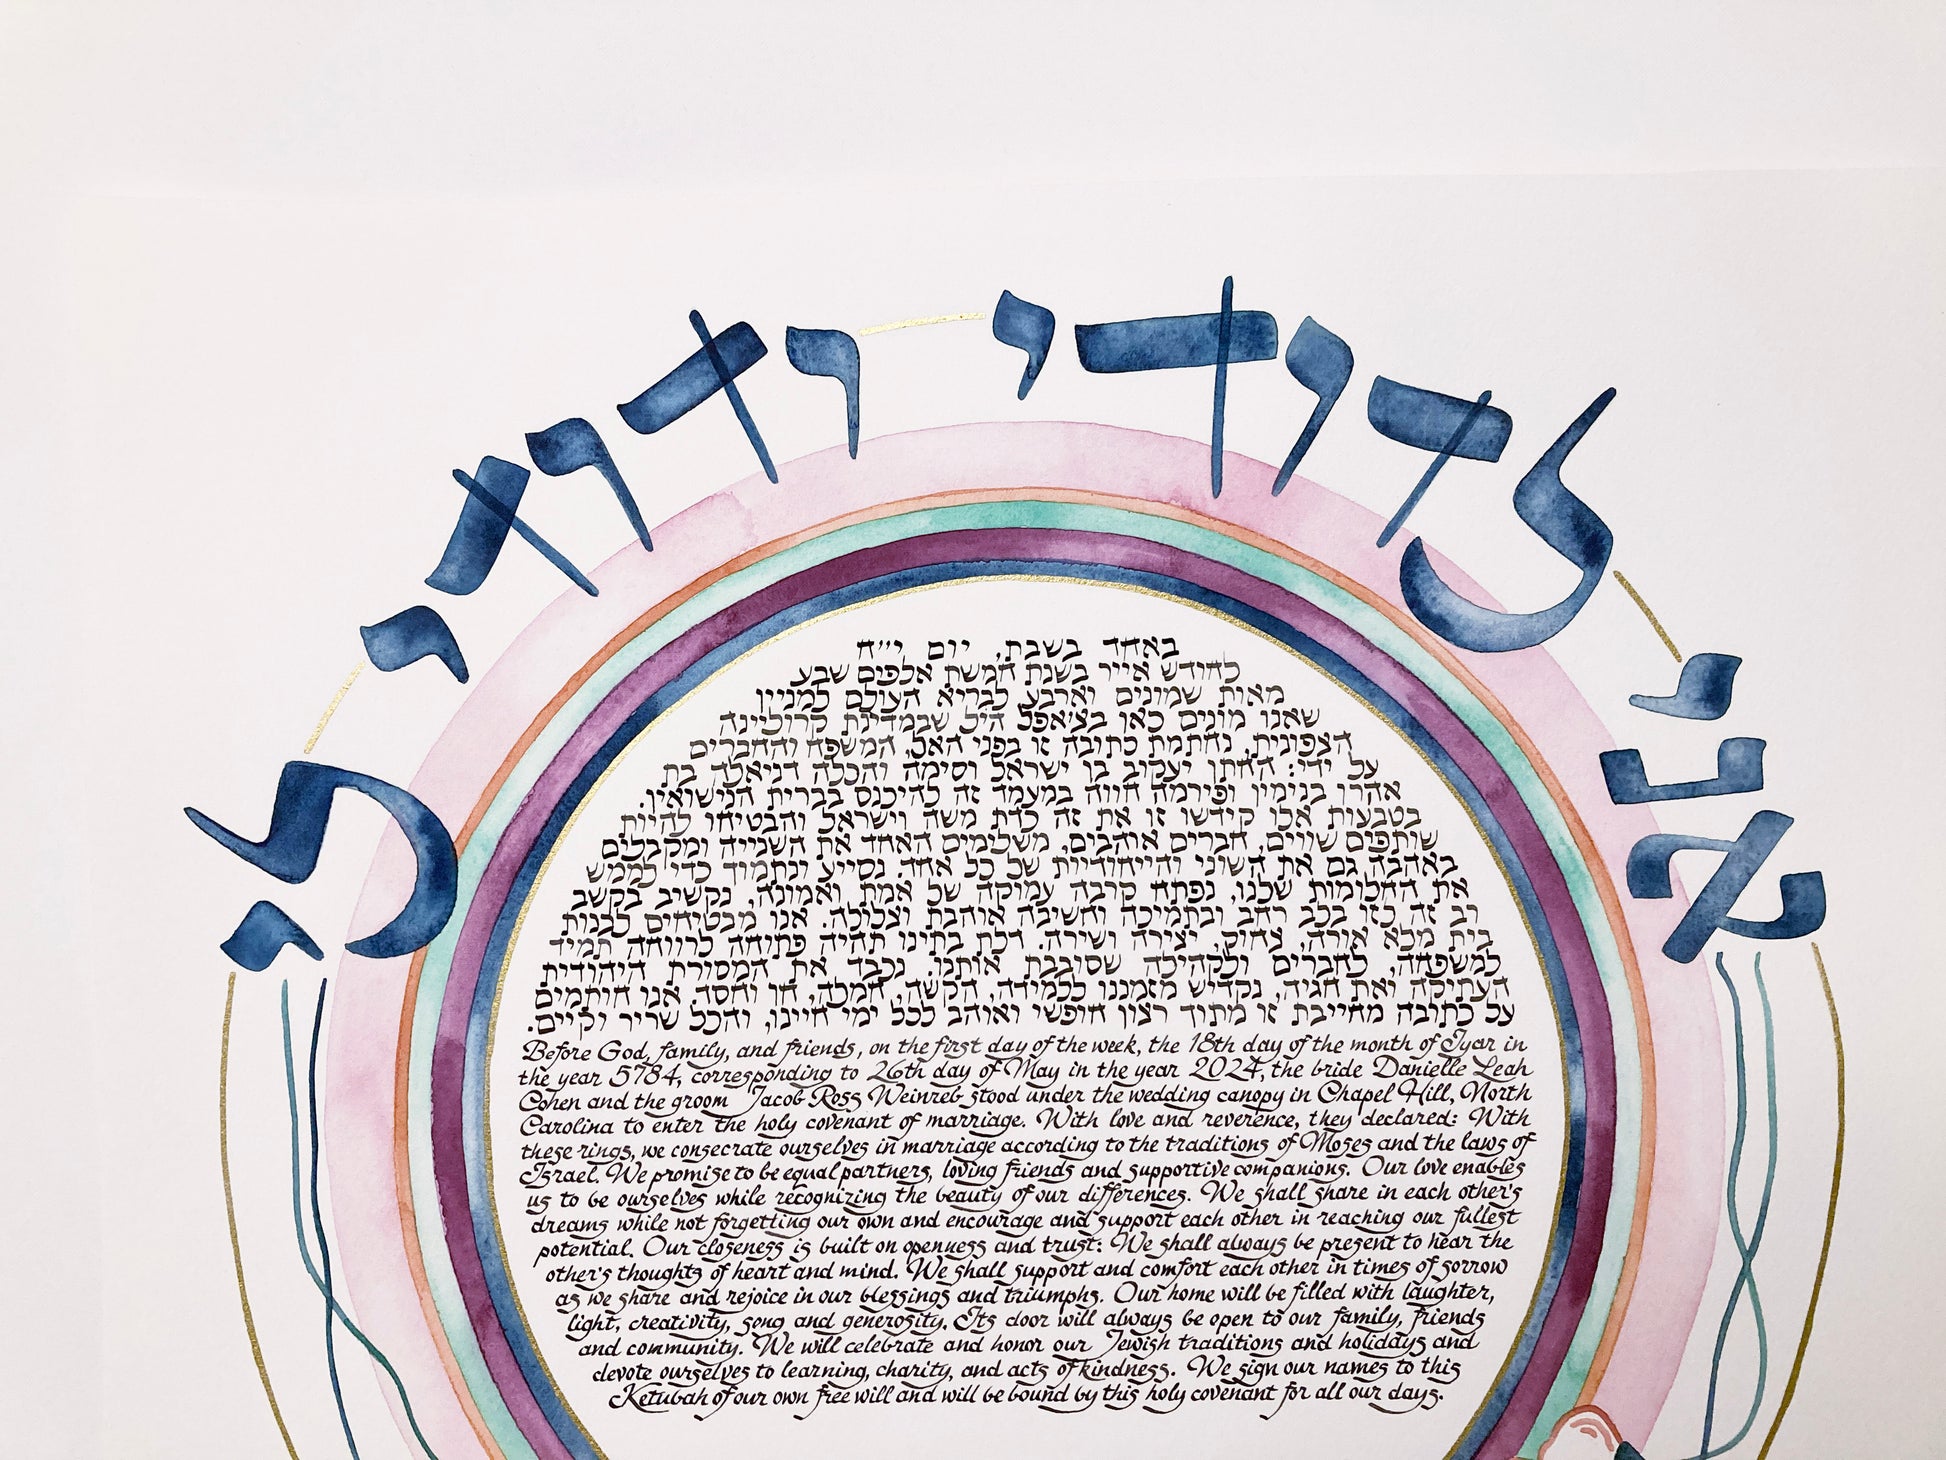 אני לדודי ודודי לי
באחד בשבת, יום י״ח
לחודש אייר בשנת חמשת אלפים שבע
מאות שמונים וארבע לבריאת העולם למניין
שאנו מונים כאן בצ׳אפל היל שבמדינת קרוליינה
הצפונית, נחתמת כתובה זו בפני האל, המשפחה והחברים
על ידי: החתן יעקוב בן ישראל וסימה והכלה דניאלה בת
אהרון בנימין ופירמה חווה במעמד זה להיכנס בברית הנישואין.
בטבעות אלו קידשו זו את זה כדת משה וישראל והבטיחו להיות
שותפים שווים, חברים אוהבים, משלימים האחד את השנייה ומקבלים
באהבה גם את השוני והייחודיות של כל אחד. נסייע ונתמוד כדי לממש
את החלומות שלנו, נפתח קרבה עמוקה של אמת ואמונה, נקשיב בקשב
רב זה לזו בלב רחב ובתמיכה וחשיבה אוהבת וצלולה. אנו מבטיחים לבנות
בית מלא אורה, צחוק, יצירה ושירה. דלת בתינו תהיה פתוחה לרווחה תמיד
למשפחה, לחברים ולקהילה שסובבת אותנו. נכבד את המסורת היהודית
העתיקה ואת חגיה, נקדיש מזמננו ללמידה, הקשה, חמלה, חן וחסד. אנו חותמים
על כתובה מחייבת זו מתוך רצון חופשי ואוהב לכל ימי חיינו, והכל שריר וקיים.
Before God, family, and friends, on the first day of the week, the 18th day of the month of Iyar in
the year 5784, corresponding to 26th day of May in the year 2024, the bride Danielle Leah
Cohen and the groom Jacob Ross Weinreb stood under the wedding canopy in Chapel Hill, North
Carolina to enter the holy covenant of marriage. With love and reverence, they declared: With
these rings, we consecrate ourselves in marriage according to the traditions of Moses and the laws of
Israel. We promise to be equal partners, loving friends and supportive companions. Our love enables
us to be ourselves while recognizing the beauty of our differences. We shall share in each other's
dreams while not forgetting our own and encourage and support each other in reaching our fullest
potential. Our closeness is built on openness and trust: We shall always be present to hear the
other's thoughts of heart and mind. We shall support and comfort each other in times of sorrow
as we share and rejoice in our blessings and triumphs. Our home will be filled with laughter,
light, creativity, song and generosity. Its door will always be open to our family, friends
and community. We will celebrate and honor our Jewish traditions and holidays and
devote ourselves to learning, charity, and acts of kindness. We sign our names to this
Ketubah of our own free will and will be bound by this holy covenant for all our days.